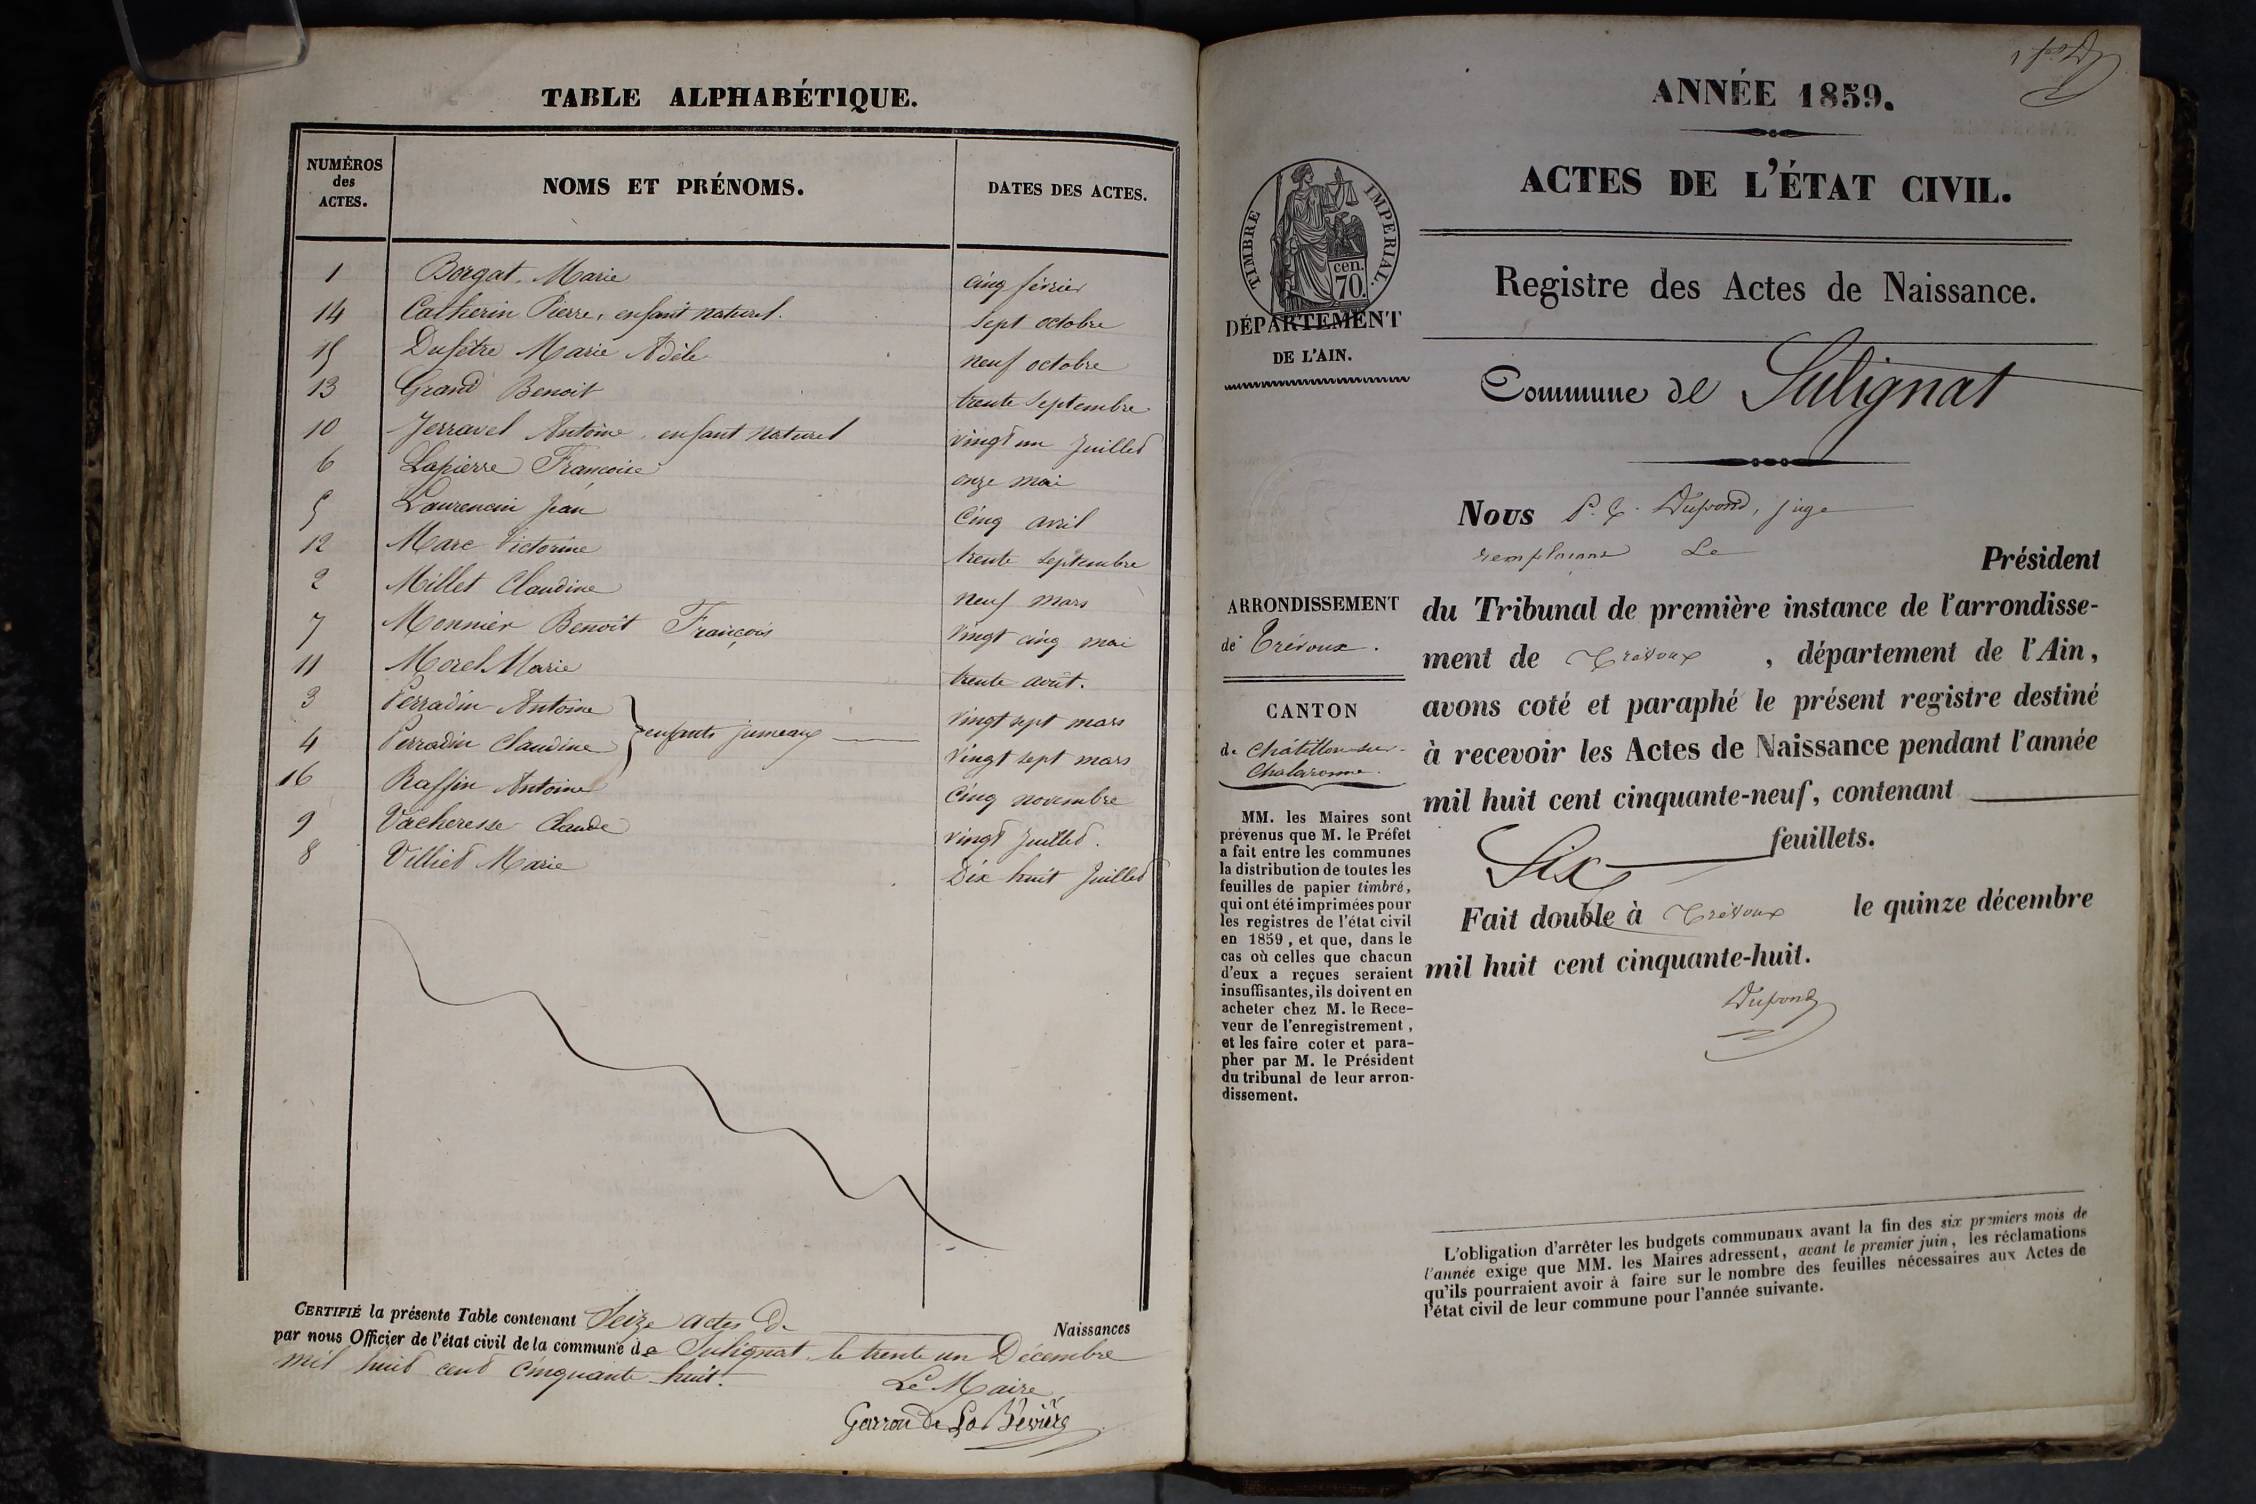 TABLE ALPHABÉTIQUE.
NUMÉROS des ACTES. NOMS ET PRÉNOMS. DATES DES ACTES.
1 Borgat Marie cinq février
14 Catherin Pierre, enfant naturel. Sept octobre
15 Dufêtre Marie Adèle neuf octobre
13 Grand Benoit trente Septembre
10 Jerravel Antoine, enfant naturel vingt un Juillet
6 Lapierre Françoise onze mai
5 Laurencin Jean Cinq avril
12 Marc Victorine trente Septembre
2 Millet Claudine neuf mars
7 Monnier Benoit François Vingt cinq mai
11 Morel Marie trente août.
3 Perradin Antoine Vingt sept mars
enfants jumeaux
4 Perradin Claudine Vingt sept mars
16 Raffin Antoine Cinq novembre
9 Vacheresse Claude vingt Juillet.
8 Villiet Marie Dix huit Juillet
CERTIFIÉ la présente Table contenant Seize actes de Naissances
par nous Officier de l'état civil de la commune de Sulignat, le trente un Décembre
mil huit cent cinquante huit.
Le Maire
Garron De La Bévière
ANNÉE 1859.
ACTES DE L'ÉTAT CIVIL.
TIMBRE IMPERIAL.
cen.
70.
Registre des Actes de Naissance.
DÉPARTEMENT
DE L'AIN.
Commune de Sulignat
Nous Dupond, juge
remplaçant Le Président
du Tribunal de première instance de l'arrondisse-
ment de Trévoux, département de l'Ain,
avons coté et paraphé le présent registre destiné
à recevoir les Actes de Naissance pendant l'année
mil huit cent cinquante-neuf, contenant
Six feuillets.
Fait double à Trévoux le quinze décembre
mil huit cent cinquante-huit.
Dupond
ARRONDISSEMENT
de Trévoux.
CANTON
de Châtillon-sur-
Chalaronne.
MM. les Maires sont
prévenus que M. le Préfet
a fait entre les communes
la distribution de toutes les
feuilles de papier timbré,
qui ont été imprimées pour
les registres de l'état civil
en 1859, et que, dans le
cas où celles que chacun
d'eux a reçues seraient
insuffisantes, ils doivent en
acheter chez M. le Rece-
veur de l'enregistrement,
et les faire coter et para-
pher par M. le Président
du tribunal de leur arron-
dissement.
L'obligation d'arrêter les budgets communaux avant la fin des six premiers mois de
l'année exige que MM. les Maires adressent, avant le premier juin, les réclamations
qu'ils pourraient avoir à faire sur le nombre des feuilles nécessaires aux Actes de
l'état civil de leur commune pour l'année suivante.